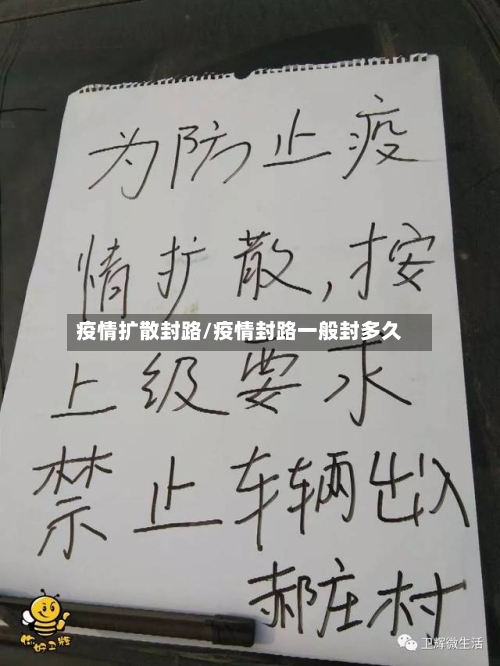 为防止疫
情扩散,按
疫情扩散封路/疫情封路一般封多久
上级要求
禁止车辆出入
郝庄村
你好卫辉
卫辉微生活